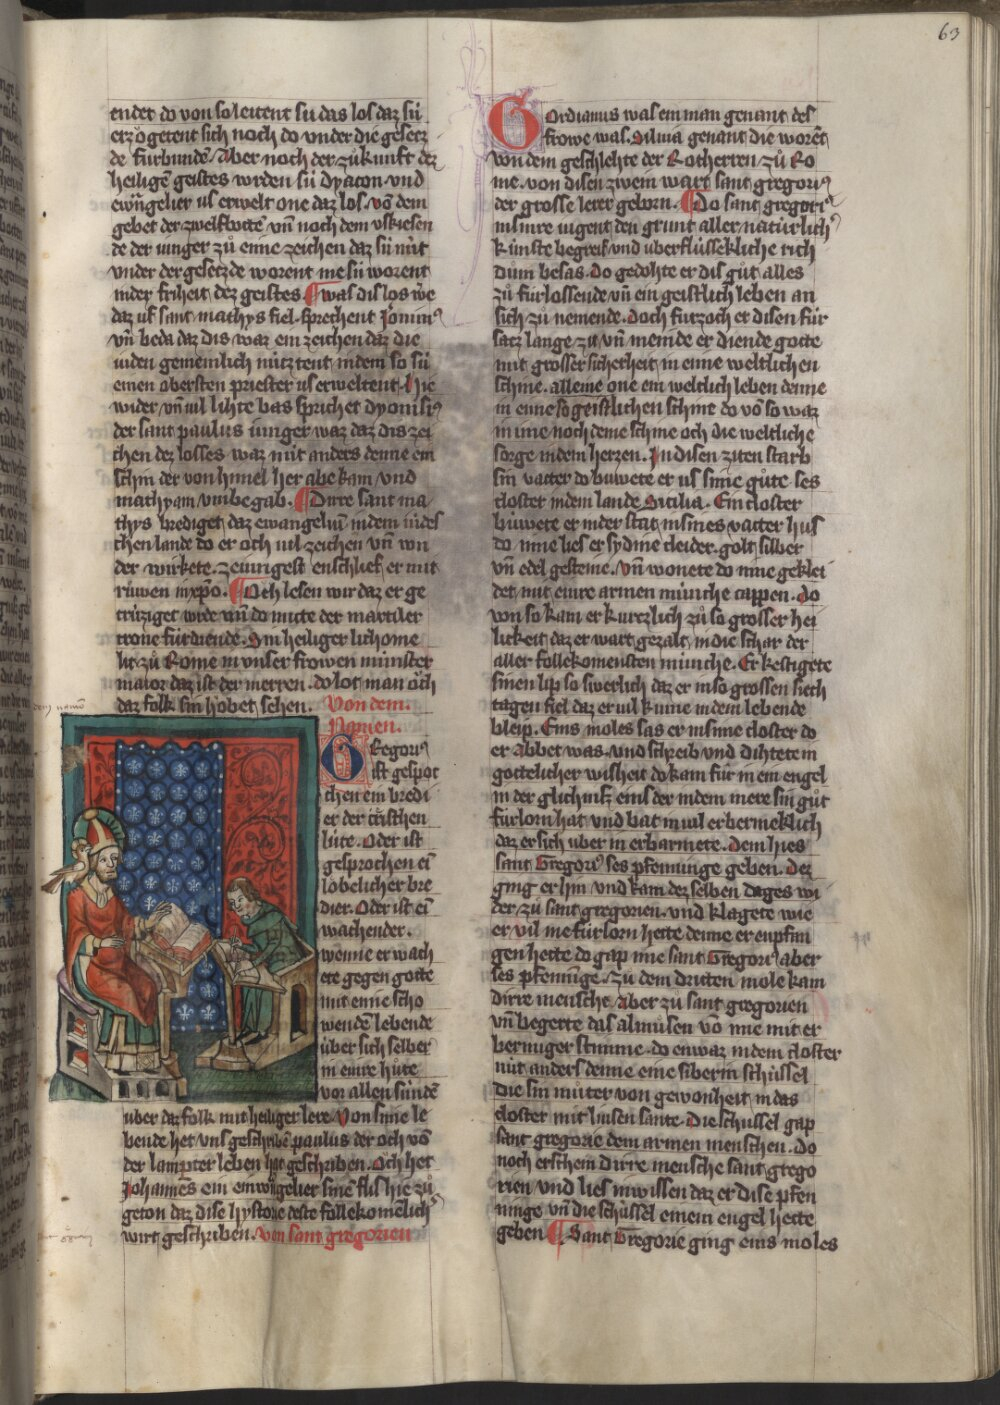 63
endet do von so leitent sú das los daz sú
erzoͮgetent sich noch do vnder die gesetz
de fúrbunde. Aber noch der zuͦkunft dez
heiligē geistes wrden sú dyacon vnd
ewāgelier us erwelt one daz los. vō dem
gebet der zwelfbottē vn̄ noch dem vskiesen
de der iunger zuͦ eime zeichen daz sú nút
vnder der gesetzde worent me sú worent
inder friheit dez geistes. was dis los we
daz uf sant mathys fiel. sprechent Jeronim⁹
vn̄ beda daz dis waz ein zeichen daz die
iuden gemeinlich nútztent indem so sú
einen obersten priester us erweltent. Hie
wider vn̄ vil lihte bas sprichet dyonisi⁹
der sant paulus iunger waz daz dis zei
chen dez losses waz nút anders denne ein
schin der von himel her abe kam vnd
mathyam vmbegab. Dirre sant ma
thys brediget daz ewangeliū indem iúdes
chen lande do er och vil zeichen vn̄ wn
der wirkete. zeiungest enschlief er mit
ruͦwen in xp̄o. Och lesen wir daz er ge
crúziget wrde vn̄ do mitte der martiler
crone fúrdiende. Sin heiliger lichome
lit zuͦ Rome in vnser frowen múnster
maior daz ist der merren. do lot man oͮch
daz folk sin hoͮbet sehen. Von dem
Namen.
GRegori⁹
ist gespro
chen ein bredi
er der cristen
lúte. Oder ist
gesprochen ei
lobelicher bre
dier. Oder ist ei
wachender.
wenne er wach
ete gegen gotte
mit eime scho
wendē lebende
úber sich selber
in eime huͦte
vor allen súnde
uber daz folk mit heiliger lere. Von sime le
bende het vns geschribē paulus der och vō
der lamparter leben hat geschriben. Och het
Johannes ein ewāgelier sinē flis hie zuͦ
geton daz dise hystorie deste follekomelich⁹
wirt geschriben. Von sant gregorien
GOrdianus was ein man genant des
frowe was. Siluia genant die worēt
von dem geschlehte der Rotherren zuͦ Ro
me. von disen zwein wart sant gregori⁹
der grosse lerer geborn. Do sant gregori⁹
in sinre iugent den grunt aller natúrlich⁹
kúnste begreif vnd uberflússekliche rich
duͦm besas. do gedohte er dis guͦt alles
zuͦ fúrlossende vn̄ ein geistlich leben an
sich zuͦ nemende. doch fúrzoch er disen fúr
satz lange zit vn̄ meinde er diende gotte
mit grosser sicherheit in eime weltlichen
schine. alleine one ein weltlich leben denne
in eime so geistlichen schine do vō so waz
in ime noch deme schine och die weltliche
sorge indem herzen. In disen ziten starb
sin vatter do buwete er us sime guͦte ses
closter indem lande Sicilia. Ein closter
buwete er inder stat in sines vatter hus
do inne lies er sydine cleider. golt silber
vn̄ edel gesteine. vn̄ wonete do inne geklei
det mit eime armen múniche cappen. do
von so kam er kurzlich zuͦ so grosser hei
likeit daz er wart gezalt in die schar der
aller follekomensten múniche. Er kestigete
sinen lip so swerlich daz er in so grossen siech
tagen fiel daz er vil kume indem lebende
bleip. Eins moles sas er in sime closter do
er abbet was vnd schreib vnd dihtete in
goettelicher wisheit do kam fúr in ein engel
in der glichnisse eins der indem mere sin guͦt
fúrlorn hat vnd bat in vil erbermeklich
daz er sich uber in erbarmete. Dem hies
sant Gregori⁹ ses pfenninge geben. Dez
ging er hin vnd kam dez selben dages wi
der zuͦ sant gregorien vnd klagete wie
er vil me fúrlorn hette denne er enpfan
gen hette do gap ime sant Gregori⁹ aber
ses pfenninge. zuͦ dem dritten mole kam
dirre mensche. Aber zuͦ sant gregorien
vn̄ begerte das almuͦsen vō ime mit er
bermiger stimme. do enwaz indem closter
nút anders denne eine silberin schússel
die sin muͦter von gewonheit in das
closter mit linsen sante. Die schússel gap
sant gregorie dem armen menschen. do
noch erschein dirre mensche sant grego
rien vnd lies in wissen daz er dise pfen
ninge vn̄ die schússel einem engel hette
geben. Sant Gregorie ging eins moles